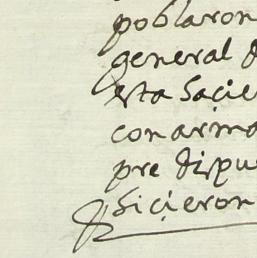 poblaron
general d
esta Sacie
con arma
pre dispu
hicieron